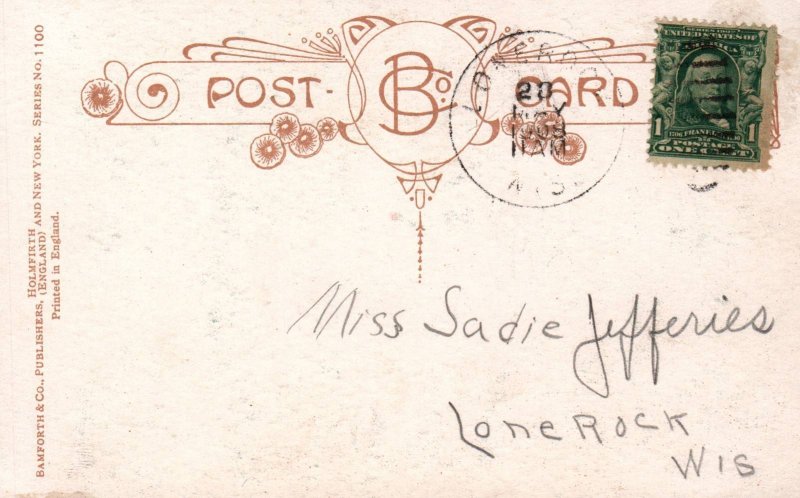 POST- B Co CARD
LONE ROCK
20
MAY
1908
11 AM
WIS.
SERIES 1902
UNITED STATES OF AMERICA
1706 FRANKLIN 1790
1 POSTAGE 1
ONE CENT
Miss Sadie Jefferies
Lone Rock
Wis
BAMFORTH & CO., PUBLISHERS, HOLMFIRTH (ENGLAND) AND NEW YORK. SERIES NO. 1100
Printed in England.